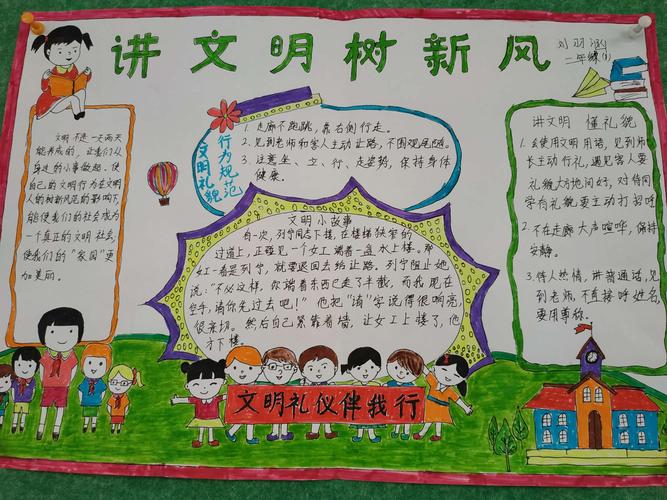 讲文明树新风
刘羽涵
二年级(1)
文明不是一天两天
能养成的,让我们从
身边的小事做起、使
自己的文明行为在文明
人的树新风范的影响下,
能使我们的社会成为
一个真正的文明社会,
使我们的“家园”更
加美丽。
文明礼貌
行为规范
1. 走廊不跑跳,靠右侧行走。
2. 见到老师和客人主动让路,不围观尾随。
3. 注意坐、立、行、走姿势,保持身体
健康。
文明小故事
有一次,列宁同志下楼,在楼梯狭窄的
过道上,正碰见一个女工端着一盆水上楼。那
女工一看是列宁,就要退回去给让路。列宁阻止她
说:“不必这样,你端着东西已走了半截,而我现在
空手,请你先过去吧!”他把“请”字说得很响亮
很亲切。然后自己紧靠着墙,让女工上楼了,他
才下楼。
讲文明 懂礼貌
1. 会使用文明用语,见到师
长主动行礼,遇见客人要
礼貌大方地问好,对待同
学有礼貌要主动打招呼
2. 不在走廊大声喧哗,保持
安静。
3. 待人热情,讲普通话,见
到老师,不直接呼姓名
要用尊称。
文明礼仪伴我行